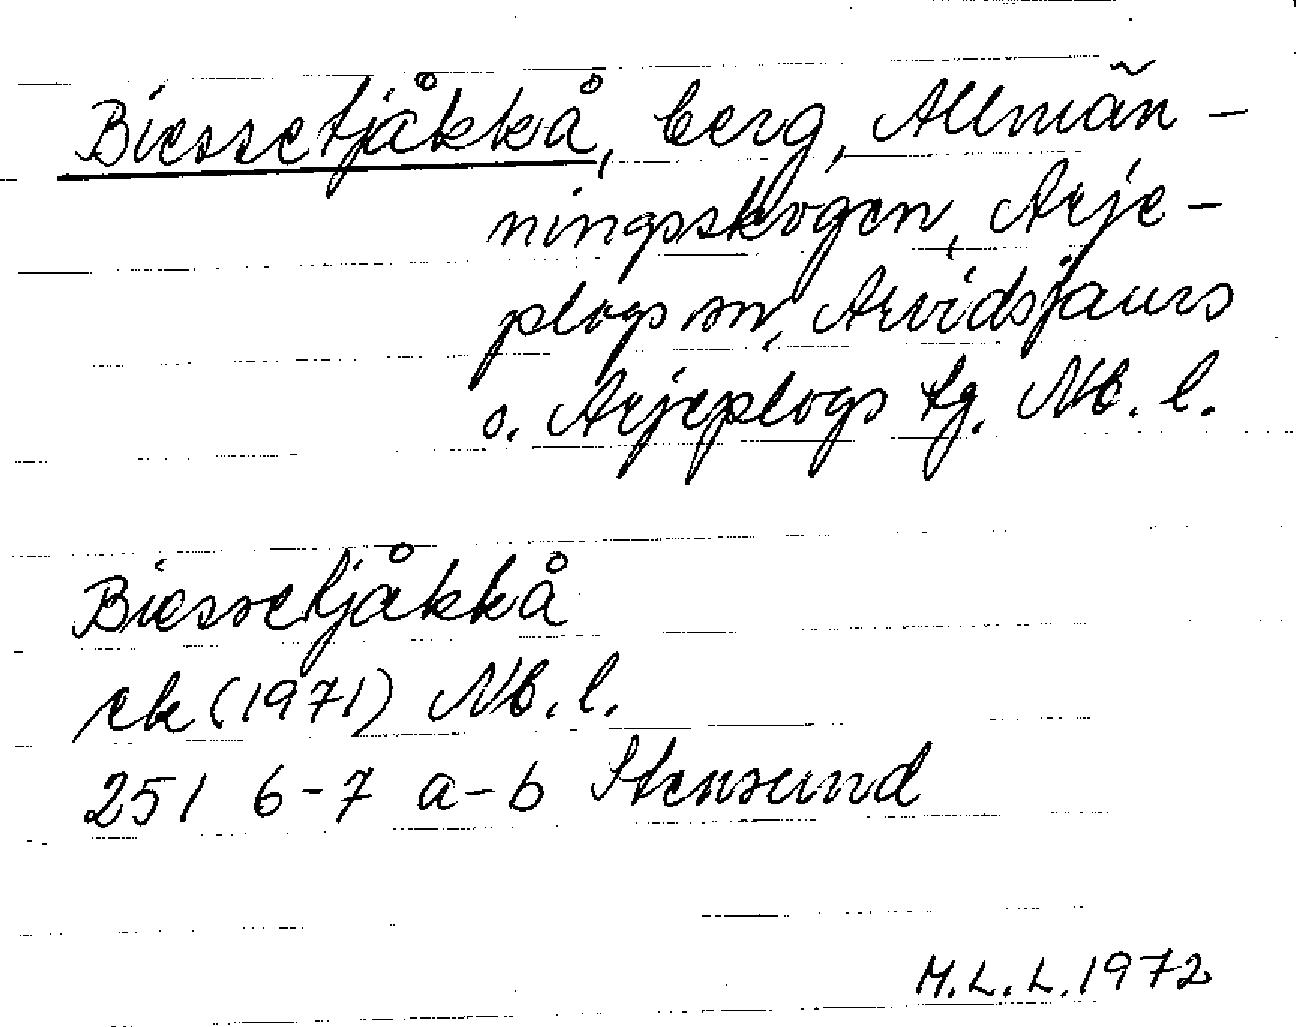 Biessetjåkkå, berg, Allmän-
ningsskogen, Arje-
plogs sn, Arvidsjaurs
o. Arjeplogs tg. Nb. l.
Biessetjåkkå
ek (1971) Nb. l.
251 6-7 a-b Stensund
M.L.L. 1972